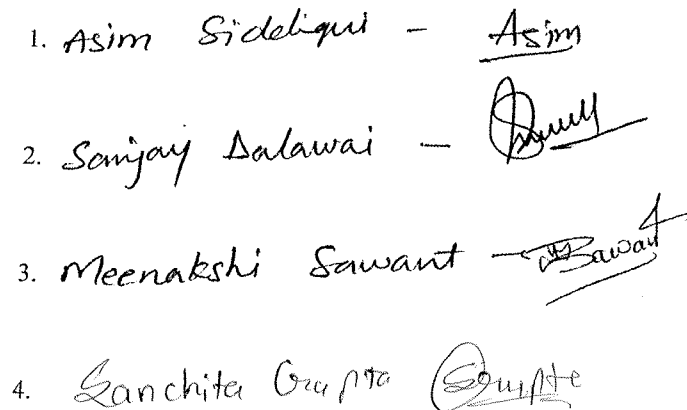 1. Asim Siddiqui - Asim
2. Sanjay Dalawai -
3. Meenakshi Sawant - Sawant
4. Sanchita Gupta SGupta